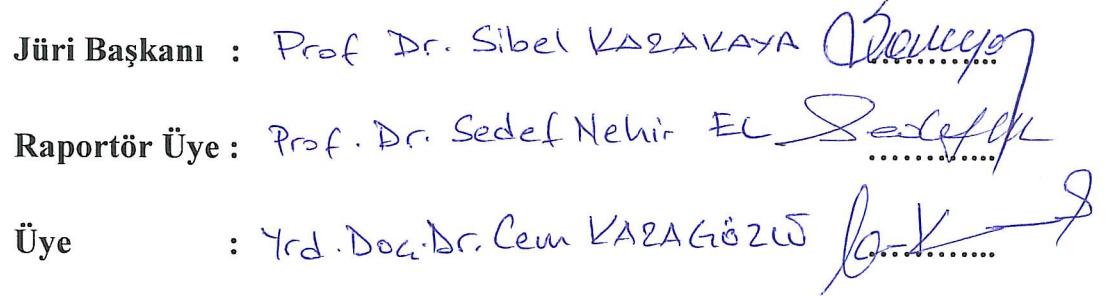 Jüri Başkanı : Prof Dr. Sibel KARAKAYA
Raportör Üye : Prof. Dr. Sedef Nehir EL
Üye : Yrd. Doç. Dr. Cem KARAGÖZLÜ